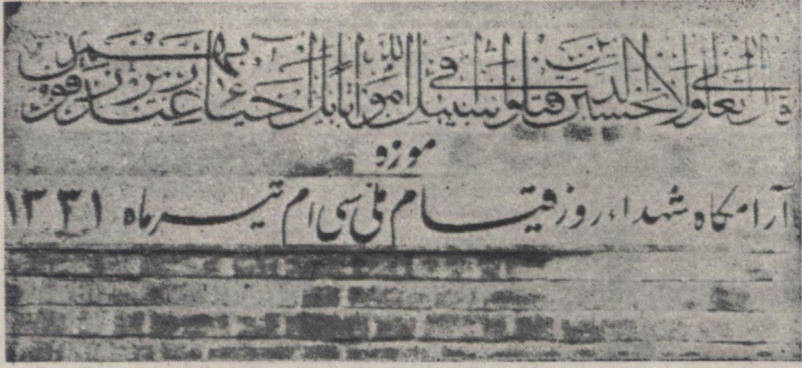 قال تعالی ولا تحسبن الذین قتلوا فی سبیل الله امواتا بل احیاء عند ربهم یرزقون
موزه
آرامگاه شهداء روز قیام ملی سی ام تیر ماه ۱۳۳۱